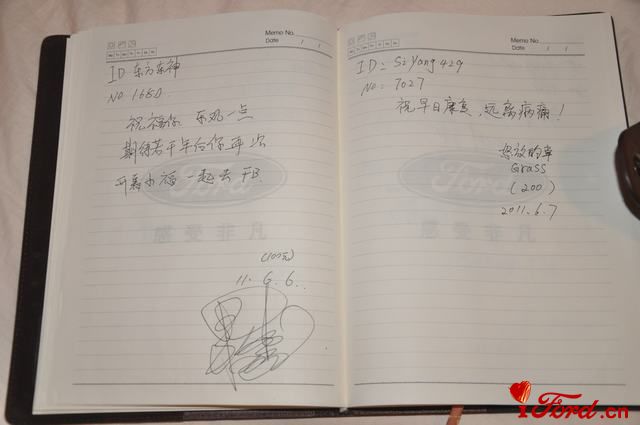 Memo No.
Date / /
ID 东方东神
NO 1680
祝福你 乐观一点
期待若干年后你再次
开着小福一起去 FB
Ford
感受非凡
(100元)
11. 6. 6.
Memo No.
Date / /
ID: SiYang429
NO: 7027
祝早日康复,远离病痛!
怒放的草
Grass
(200)
2011.6.7
Ford
感受非凡
iFord.cn